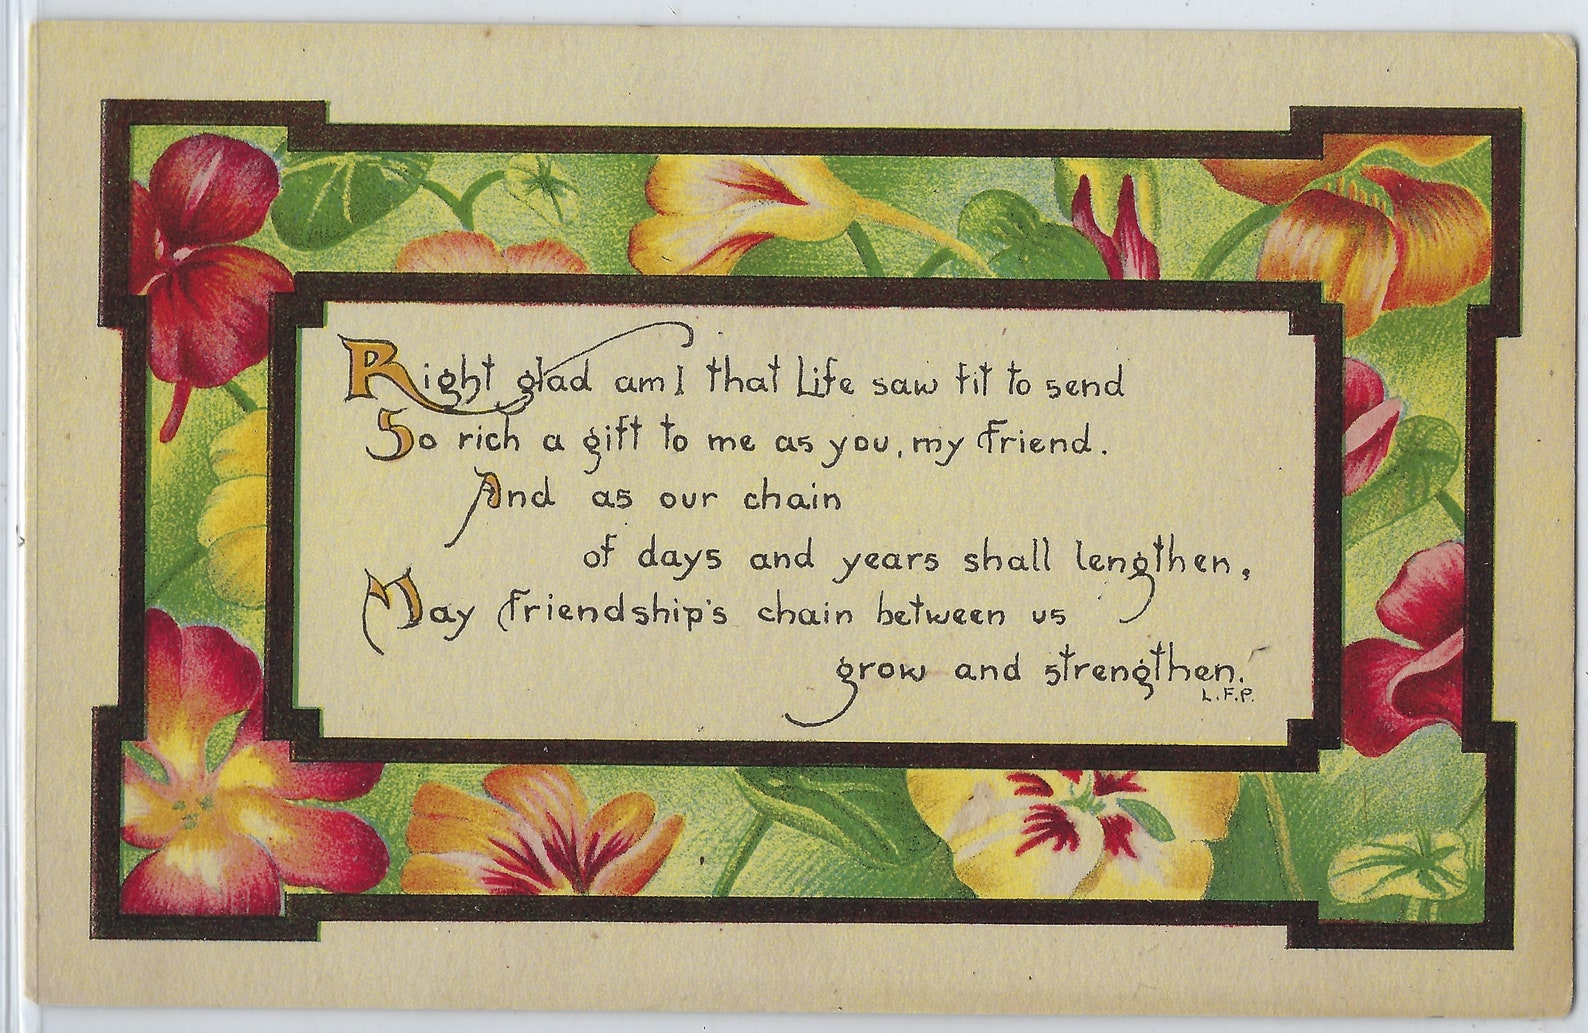 Right glad am I that Life saw fit to send
So rich a gift to me as you, my Friend.
And as our chain
of days and years shall lengthen,
May Friendship's chain between us
grow and strengthen.
L.F.P.